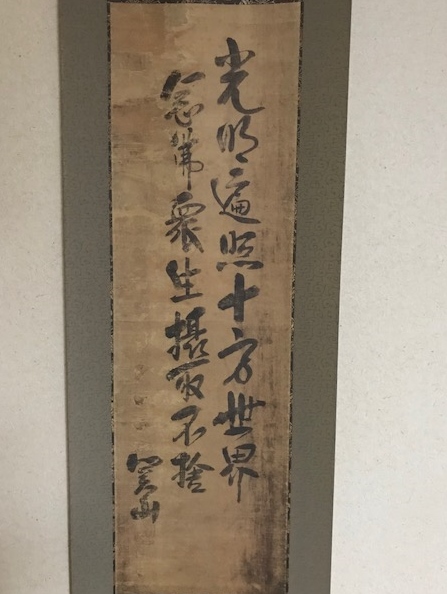 光明遍照十方世界
念佛衆生攝取不捨